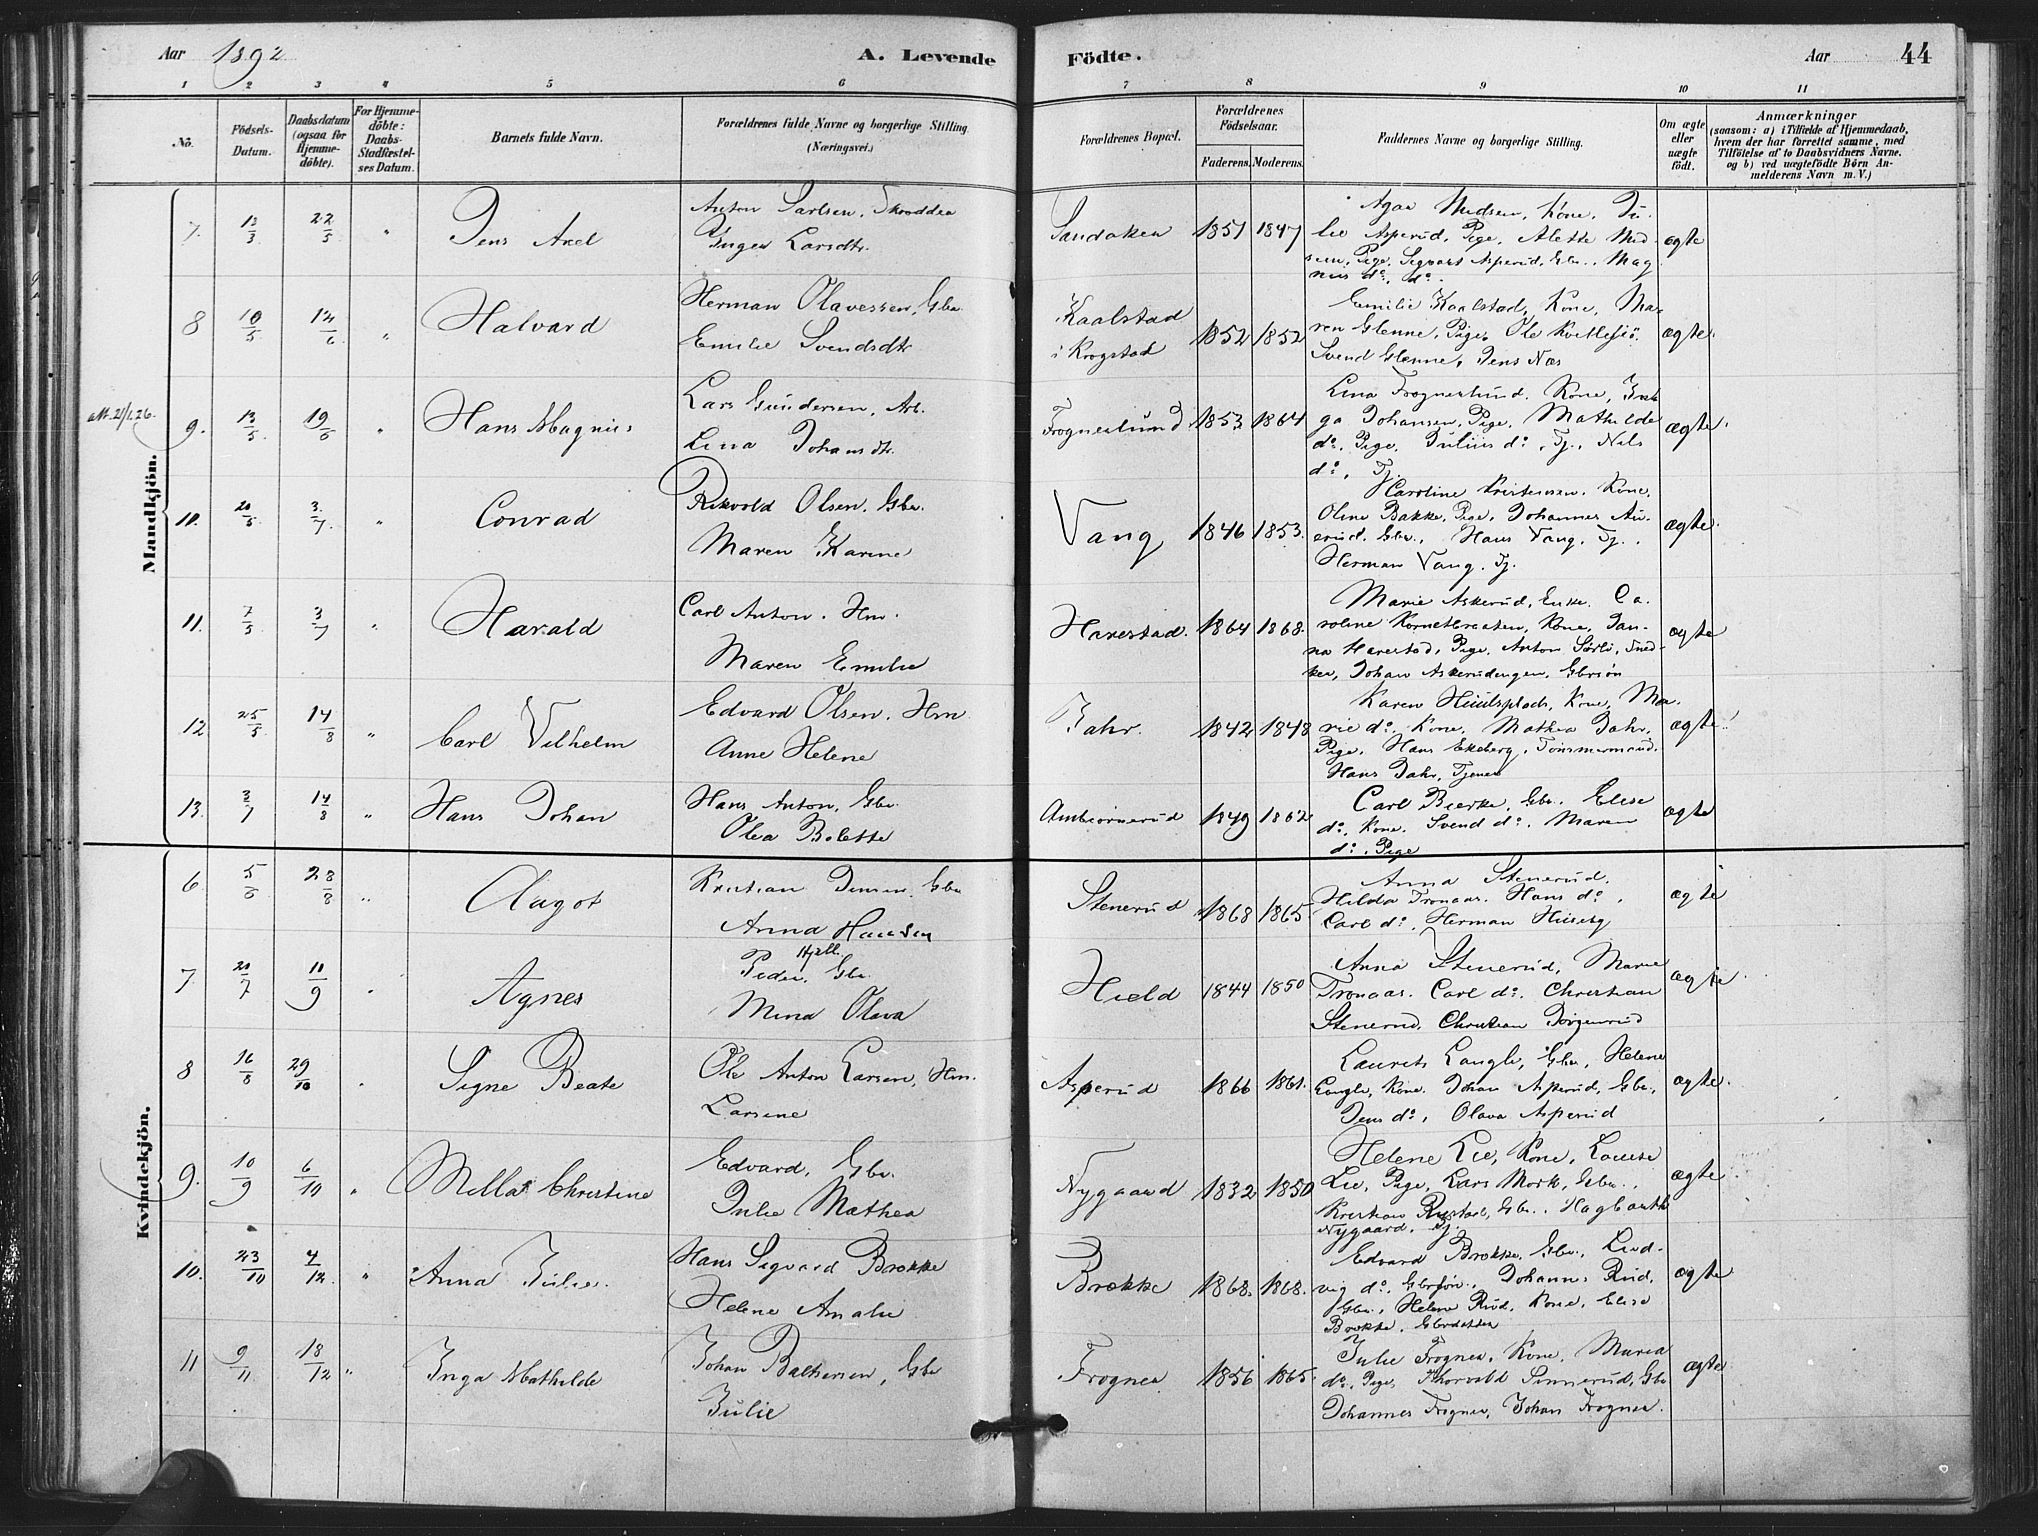 Aar 1892 A. Levende
1 2 3 4 5 6
No.
Födsels-Datum.
Daabsdatum (ogsaa for Hjemme-döbte).
For Hjemme-döbte: Daabs-Stadfæstel-ses Datum.
Barnets fulde Navn.
Forældrenes fulde Navne og borgerlige Stilling
(Næringsvei.)
Mandkjön.
7. 13/3 22/5 " Jens Axel
Anton Carlsen,
Inger Larsdtr.
8 10/5 12/6 " Halvard
Herman Olavessen, Gbr.
Emilie Svendsdtr
att. 21/1.26.
9. 13/5 19/6 " Hans Magnus
Lars Gundersen, Arb.
Lina Johansdtr.
10. 20/5 3/7 " Conrad
Rikvold Olsen. Gbr.
Maren Karine
11. 7/5 3/7 " Harald
Carl Anton. Hm.
Maren Emilie
12 25/5 14/8 " Carl Vilhelm
Edvard Olsen. Hm
Anne Helene
13. 3/7 14/8 " Hans Johan
Hans Anton, Gbr.
Olea Bolette
Kvindekjön.
6 5/6 28/8 " Aagot
Kristian Jensen Gbr
Anna Hansen
7 20/7 11/9 " Agnes
Hjell.
Peder, Gbr.
Mina Olava
8 16/8 29/10 " Signe Beate
Ole Anton Larsen, Hm.
Larsine
9. 10/9 6/10 " Milla Christine
Edvard, Gbr.
Julie Mathea
10. 23/10 4/12 " Anna Julie.
Hans Sigvard Brække
Helene Amalie
11 9/11 18/12 " Inga Mathilde
Johan Baltsersen, Gbr
Julie
Födte. Aar 44
7 8 9 10 11
Forældrenes Bopæl.
Forældrenes Födselsaar.
Faderens. Moderens.
Faddernes Navne og borgerlige Stilling.
Om ægte eller uægte födt.
Anmærkninger
(saasom: a) i Tilfælde af Hjemmedaab,
hvem der har forrettet samme, med
Tilföielse af to Daabsvidners Navne,
og b) ved uægtefödte Börn An-
melderens Navn m. V.)
Sandaker 1851 1847
Agar Madsen, Kone, Ju-
lie Asperud, Pige, Alette Mad-
sen, Pige, Sigvart Asperud, Gbr., Mag
nus do. do.
ægte
Kaalstad
i Krogstad 1852 1852
Emilie Kaalstad, Kone, Ma-
ren Glenne, Pige, Ole
Svend Glenne, Jens Næs
ægte.
Frognerlund 1853 1864
Lina Frognerlund. Kone,
ga Johansen, Pige, Mathilde
do. Pige. Julius do, Tj. Nils
do, Tj.
ægte.
Vang 1846 1853.
Caroline Kristensen. Kone.
Oline Bakke, Pige, Johannes Au-
erud. Gbr., Hans Vang, Tj.
Herman Vang. Tj.
ægte.
Harestad. 1864 1868.
Marie Askerud, Enke. Ca-
roline Kornetbraaten, Kone, Jan-
na Harestad, Pige. Anton Sørli, Sned-
ker, Johan Askerudengen, Gbrsøn
ægte
Dahr. 1842 1848
Karen Huulsplads, Kone, Ma-
rie do. Kone, Mathea Dahr,
Pige, Hans Ekeberg, Tømmermand.
Hans Dahr, Tjener
ægte.
Ambiørnerud 1849 1862
Carl Bjerke, Gbr. Elise
do. Kone. Svend do. Maren
do. Pige
ægte
Stenerud 1868 1865
Anna Stenerud,
Hilda Tronaas. Hans do,
Carl do, Herman Huseby
ægte
Hield 1844 1850
Anna Stenerud, Marie
Tronaas. Carl do. Christian
Stenerud, Christian Jørgenrud
ægte
Asperud 1866 1861.
Laurits Langli, Gbr., Helene
Langli, Kone. Johan Asperud, Gbr.,
Jens do, Olava Asperud
ægte.
Nygaard 1832 1850
Helene Lie, Kone, Louise
Lie, Pige, Lars Mork, Gbr.,
Kristian Rustad, Gbr., Hagbarth
Nygaard, Tj.
ægte
Brække 1868. 1868.
Edvard Brække, Gbr., Lud-
vig do. Gbrsøn., Johannes Rud,
Gbr., Helene Rud, Kone, Elise
Brække, Gbrdatter
ægte
Frogner 1856 1865
Julie Frogner, Kone, Maria
do., Pige, Thorvald Sinnerud, Gbr
Johannes Frogner, Johan Frogner.
ægte